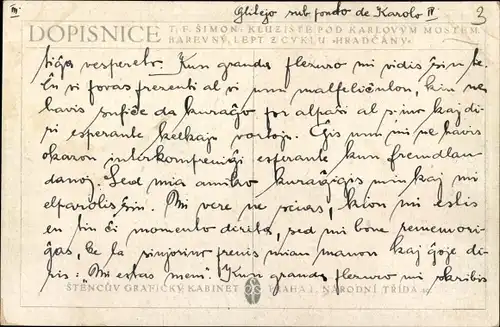 III
Glitejo sub ponto de Karolo IV
3
DOPISNICE
T. F. ŠIMON: KLUZIŠTĚ POD KARLOVÝM MOSTEM.
BAREVNÝ LEPT Z CYKLU »HRADČANY«
tiĝas vespereto. Kun granda plezuro mi vidis ŝin ke.
Ĉu vi povas prezenti al vi unu malfeliĉulon, kiu ne
havis sufiĉe da kuraĝo por alpaŝi al s-ino kaj di-
ri esperante kelkajn vortojn. Ĝis nun mi ne havis
okazon interkompreniĝi esperante kun fremdlan-
danoj. Sed mia amiko kuraĝigis min kaj mi
elparolis ĝin. Mi vere ne scias, kion mi estis
en tiu ĉi momento dirita, sed mi bone rememori-
ĝas, ke la sinjorino prenis mian manon kaj ĝoje di-
ris: "Mi estas mem". Kun granda plezuro mi skribis
ŠTENCŮV GRAFICKÝ KABINET PRAHA I, NÁRODNÍ TŘÍDA